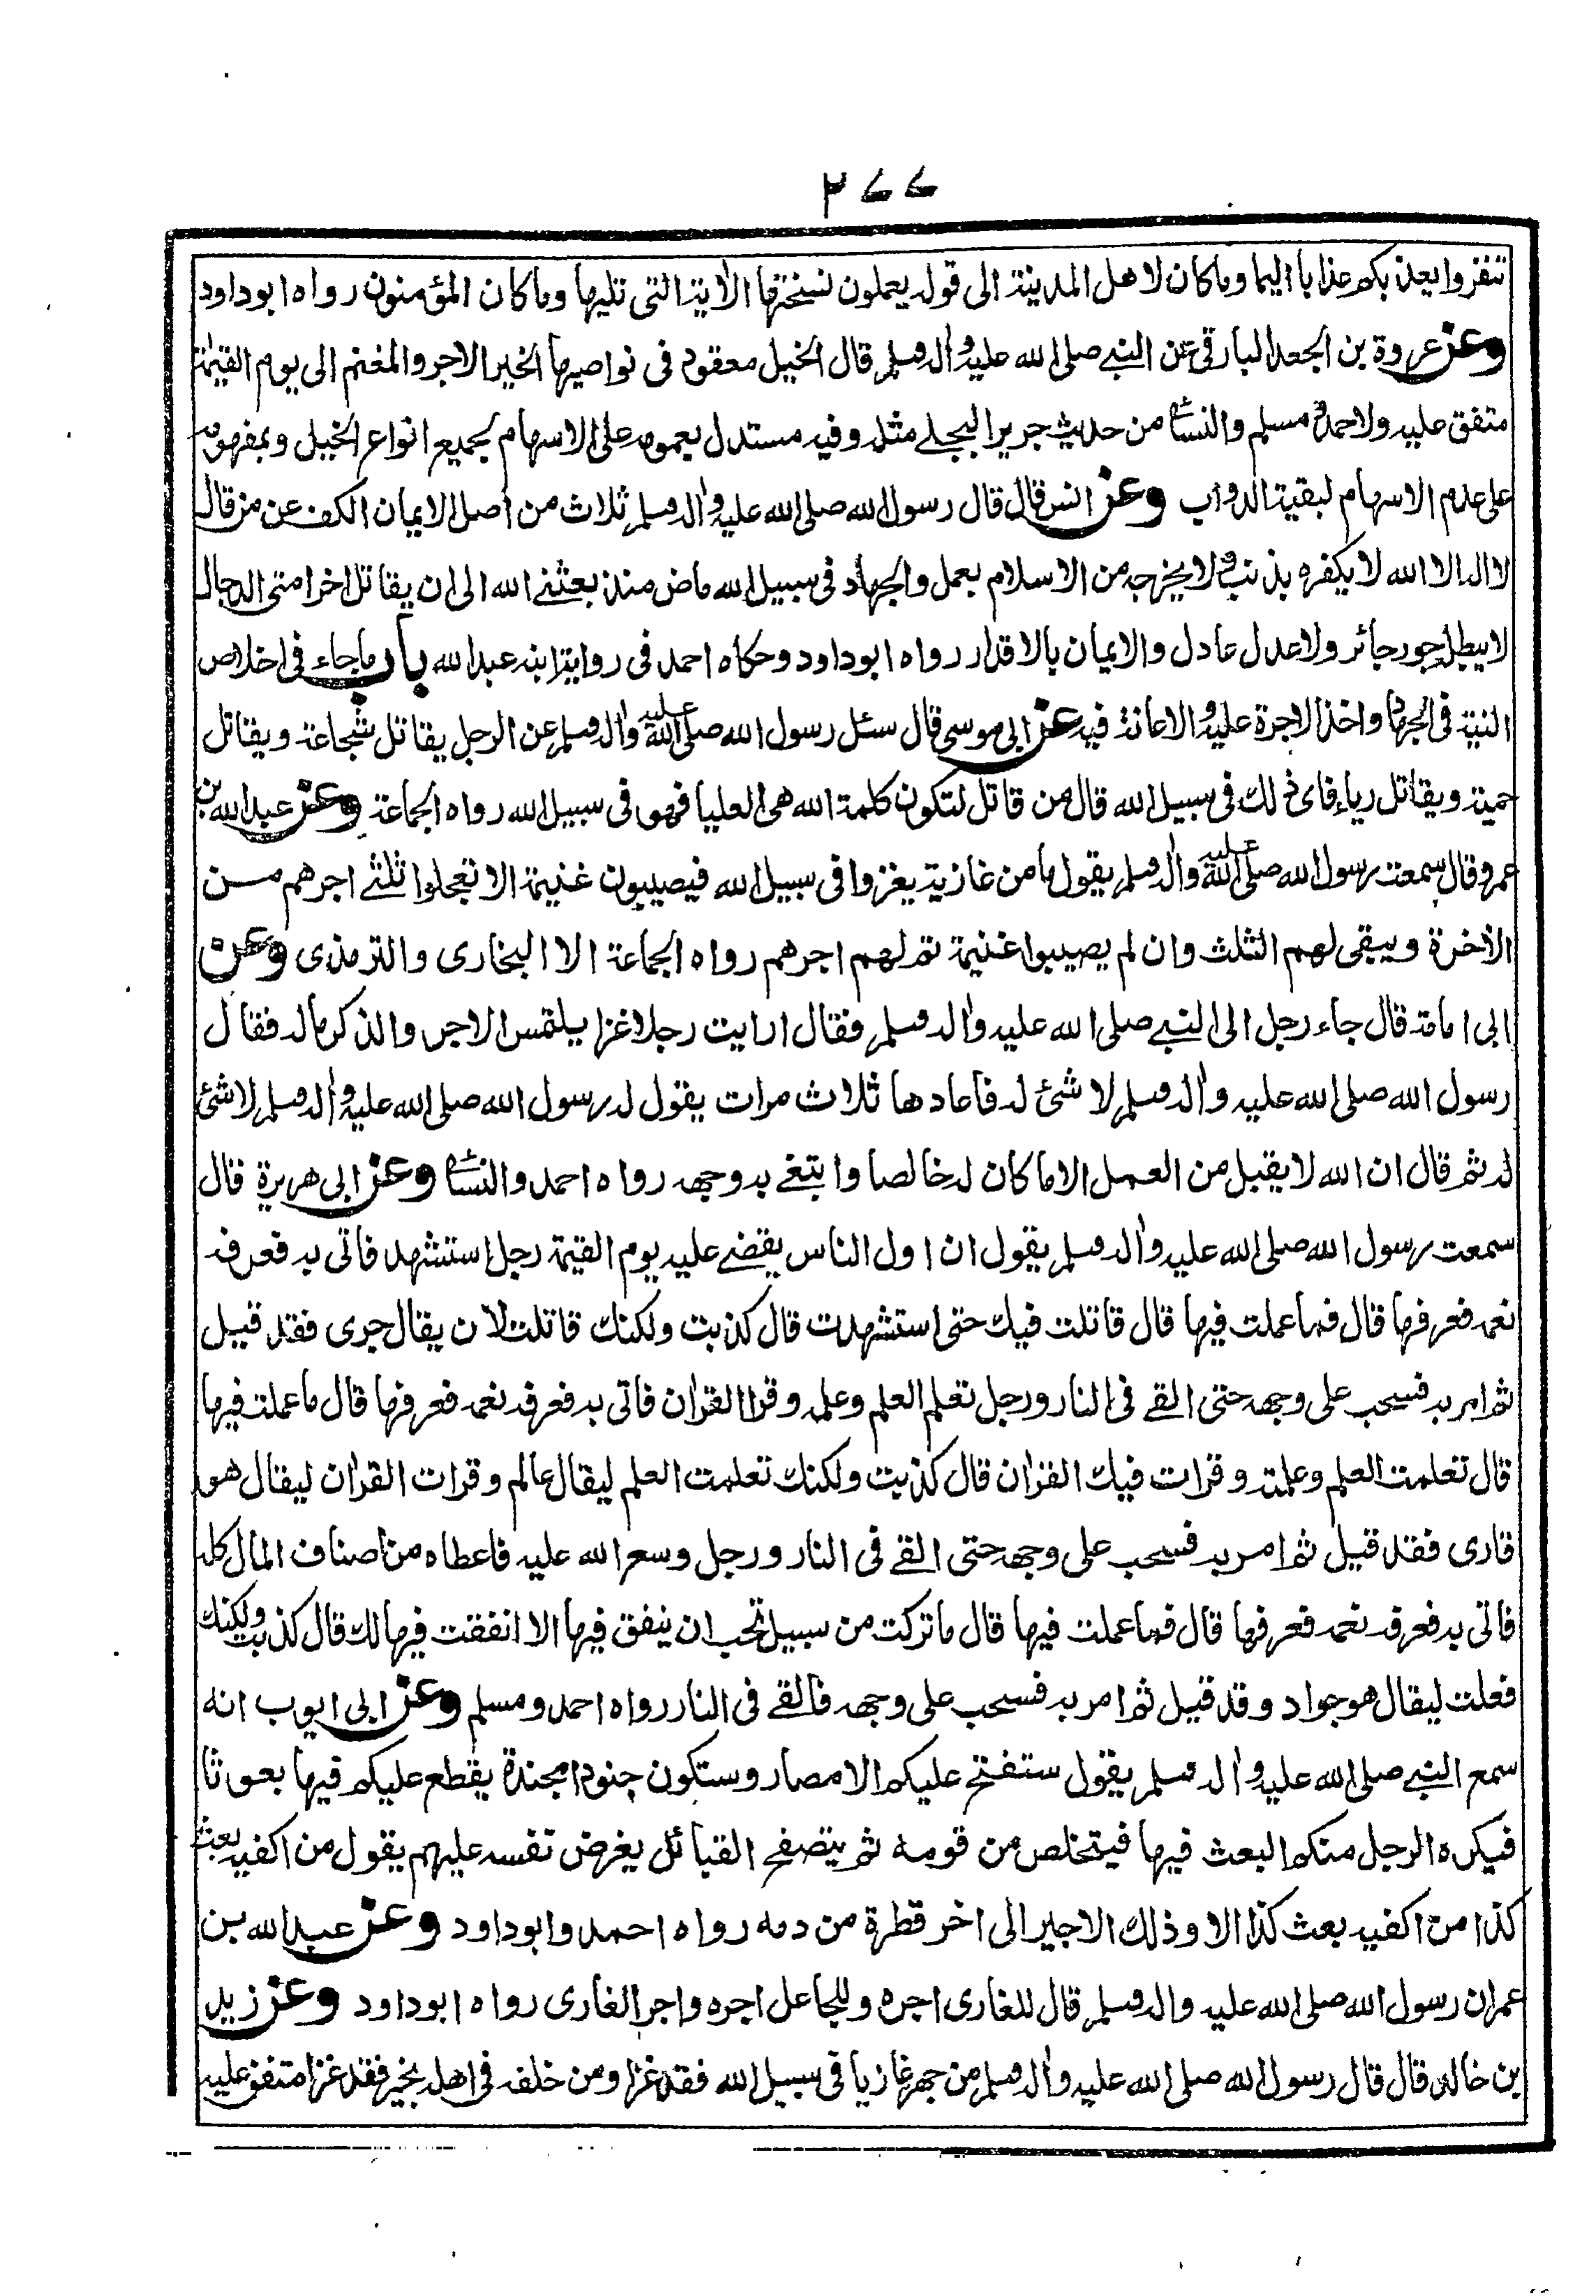 ٢٧٧
تنفروا يعذبكم عذابا اليما وماكان لاهل المدينة الى قوله يعملون نسختها الاٰية التى تليها وماكان المؤمنون رواه ابوداود
وعن عروة بن الجعد البارقى عن النبى صلى الله عليه واٰله وسلم قال الخيل معقود فى نواصيها الخير الاجر والمغنم الى يوم القيٰمة
متفق عليه ولاحمد ومسلم والنسائى من حديث جرير البجلى مثله وفيه مستدل بعمومه على الاسهام لجميع انواع الخيل وبمفهومه
على عدم الاسهام لبقية الدواب وعن انس قال قال رسول الله صلى الله عليه واٰله وسلم ثلاث من اصل الايمان الكف عن من قال
لا اله الا الله لا يكفره بذنب ولا يخرجه من الاسلام بعمل والجهاد فى سبيل الله ماض منذ بعثنى الله الى ان يقاتل اخر امتى الدجال
لا يبطله جور جائر ولا عدل عادل والايمان بالاقدار رواه ابوداود وحكاه احمد فى رواية ابنه عبد الله باب ماجاء فى اخلاص
النية فى الجهاد واخذ الاجرة عليه والاعانة فيه عن ابى موسى قال سئل رسول الله صلى الله عليه واٰله وسلم عن الرجل يقاتل شجاعة ويقاتل
حمية ويقاتل رياء فاى ذلك فى سبيل الله قال من قاتل لتكون كلمة الله هى العليا فهو فى سبيل الله رواه الجماعة وعن عبد الله بن
عمرو قال سمعت رسول الله صلى الله عليه واٰله وسلم يقول ما من غازية يغزوا فى سبيل الله فيصيبون غنيمة الا تعجلوا ثلثى اجرهم من
الاٰخرة ويبقى لهم الثلث وان لم يصيبوا غنيمة تم لهم اجرهم رواه الجماعة الا البخارى والترمذى وعن
ابى امامة قال جاء رجل الى النبى صلى الله عليه واٰله وسلم فقال ارايت رجلا غزا يلتمس الاجر والذكر ماله فقال
رسول الله صلى الله عليه واٰله وسلم لا شئ له فاعادها ثلاث مرات يقول له رسول الله صلى الله عليه واٰله وسلم لا شئ
له ثم قال ان الله لا يقبل من العمل الا ماكان له خالصا وابتغى به وجهه رواه احمد والنسائى وعن ابى هريرة قال
سمعت رسول الله صلى الله عليه واٰله وسلم يقول ان اول الناس يقضى عليه يوم القيمة رجل استشهد فاتى به فعرفه
نعمه فعرفها قال فما عملت فيها قال قاتلت فيك حتى استشهدت قال كذبت ولكنك قاتلت لان يقال جرى فقد قيل
ثم امر به فسحب على وجهه حتى القى فى النار ورجل تعلم العلم وعلمه وقرا القراٰن فاتى به فعرفه نعمه فعرفها قال ما عملت فيها
قال تعلمت العلم وعلمته وقرات فيك القراٰن قال كذبت ولكنك تعلمت العلم ليقال عالم وقرات القراٰن ليقال هو
قارى فقد قيل ثم امر به فسحب على وجهه حتى القى فى النار ورجل وسع الله عليه فاعطاه من اصناف المال كله
فاتى به فعرفه نعمه فعرفها قال فما عملت فيها قال ما تركت من سبيل تحب ان ينفق فيها الا انفقت فيها لك قال كذبت ولكنك
فعلت ليقال هو جواد وقد قيل ثم امر به فسحب على وجهه فالقى فى النار رواه احمد ومسلم وعن ابى ايوب انه
سمع النبى صلى الله عليه واٰله وسلم يقول ستفتح عليكم الامصار وستكون جنود مجندة يقطع عليكم فيها بعوثا
فيكره الرجل منكم البعث فيها فيتخلص من قومه ثم يتصفح القبائل يعرض نفسه عليهم يقول من اكفيه بعث
كذا من اكفيه بعث كذا الا وذلك الاجير الى اخر قطرة من دمه رواه احمد وابوداود وعن عبد الله بن
عمر ان رسول الله صلى الله عليه واله وسلم قال للغازى اجره وللجاعل اجره واجر الغازى رواه ابوداود وعن زيد
بن خالد قال قال رسول الله صلى الله عليه واٰله وسلم من جهز غازيا فى سبيل الله فقد غزا ومن خلفه فى اهله بخير فقد غزا متفق عليه